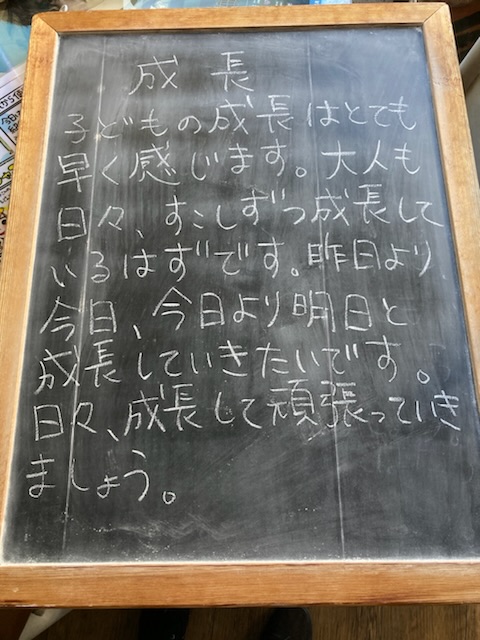 成長
子どもの成長はとても
早く感じます。大人も
日々、すこしずつ成長して
いるはずです。昨日より
今日、今日より明日と
成長していきたいです。
日々、成長して頑張っていき
ましょう。